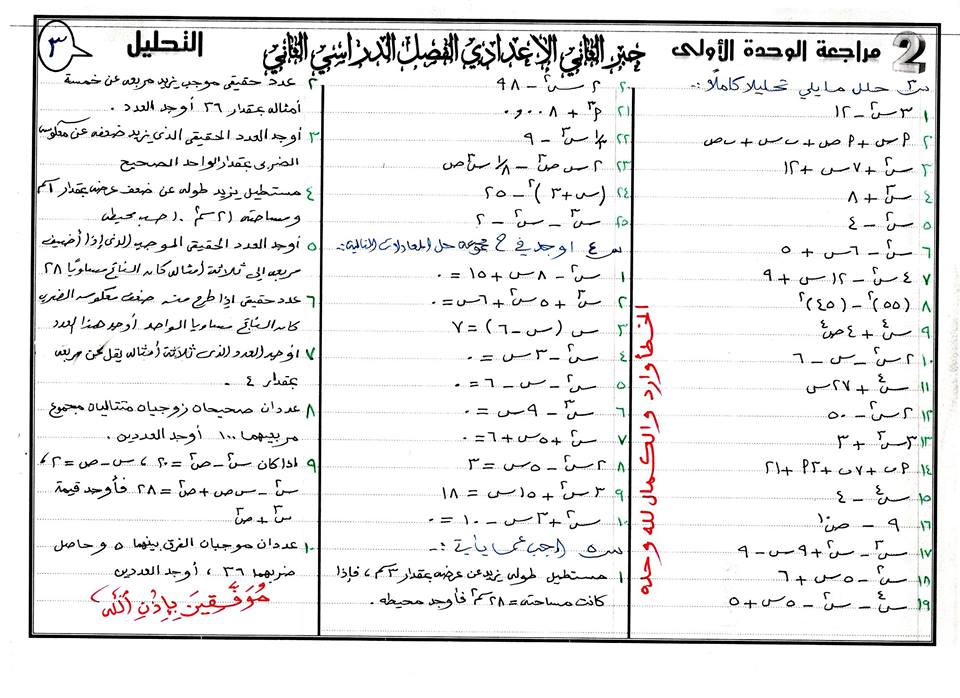 2 مراجعة الوحدة الأولى
جبر الثاني الإعدادي الفصل الدراسي الثاني
التحليل
٣
س٣ حلل مايلي تحليلا كاملا :-
١ ٣س٢ - ١٢
٢ ٢س + ٢ص + ب س + ب ص
٣ س٢ + ٧س + ١٢
٤ س٣ + ٨
٥ س٢ - ٤
٦ س٢ - ٦س + ٥
٧ ٤س٢ - ١٢س + ٩
٨ (٥٥)٢ - (٤٥)٢
٩ س٤ + ٤ص٤
١٠ ٢س٢ - س - ٦
١١ س٤ + ٢٧س
١٢ ٢س٢ - ٥٠
١٣ ٣س٢ + ٣
١٤ ٢ب + ٧ب + ٢٣ + ٢١
١٥ س٤ - ٤
١٦ ٩ - ص١٠
١٧ س٣ - س٢ + ٩س - ٩
١٨ س٢ - ٥س + ٦
١٩ س٤ - س٢ - ٥س + ٥
الخطأ وارد والكمال لله وحده
٢٠ ٢س٢ - ٩٨
٢١ ٣م + ٠,٠٠٨
٢٢ ١/٣ س٣ - ٩
٢٣ ٢س ص٣ - ١/٨ س٣ص
٢٤ (س + ٣)٢ - ٢٥
٢٥ س٣ - س٢ - ٢
س٤ اوجد في ح مجموعه حل المعادلات التالية :-
١ س٢ - ٨س + ١٥ = ٠
٢ س٣ + ٥س٢ + ٦س = ٠
٣ س (س - ٦) = ٧
٤ س٢ - ٣س = ٠
٥ س٢ - س - ٦ = ٠
٦ س٣ - ٩س = ٠
٧ س٢ + ٥س + ٦ = ٠
٨ ٢س٢ - ٥س = ٣
٩ ٣س٢ + ١٥س = ١٨
١٠ س٢ + ٣س - ١٠ = ٠
س٥ اجب عما يأتي :-
١ مستطيل طوله يزيد عن عرضه بمقدار ٣سم ، فإذا
كانت مساحته = ٢٨سم٢ فأوجد محيطه .
٢ عدد حقيقى موجب يزيد مربعه عن خمسة
أمثاله بمقدار ٣٦ أوجد العدد .
٣ أوجد العدد الحقيقى الذى يزيد ضعفه عن معكوسه
الضربى بمقدار الواحد الصحيح
٤ مستطيل يزيد طوله عن ضعف عرضه بمقدار ١سم
ومساحته ٢١سم٢ . احسب محيطه
٥ أوجد العدد الحقيقى الموجب الذى إذا أضيف
مربعه إلى ثلاثة أمثاله كان الناتج مساويا ٢٨
٦ عدد حقيقى إذا طرح منه ضعف معكوسه الضربى
كان الناتج مساويا الواحد أوجد هذا العدد
٧ اوجد العدد الذى ثلاثة أمثاله يقل عن مربعه
بمقدار ٤ .
٨ عددان صحيحان زوجيان متتاليان مجموع
مربعيهما ١٠٠ أوجد العددين .
٩ اذا كان س٣ - ص٣ = ٢٠ ، س - ص = ٢ ،
س٢ - س ص + ص٢ = ٢٨ فأوجد قيمة
س٣ + ص٣
١٠ عددان موجبان الفرق بينهما ٥ وحاصل
ضربهما ٣٦ ، أوجد العددين
مُوَفَّقِينَ بِإِذْنِ اللَّه